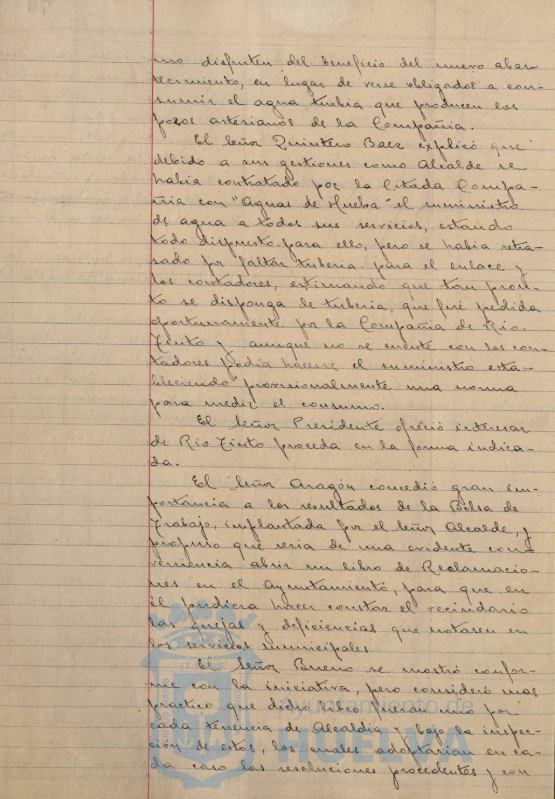 no disfruten del beneficio del nuevo abas-
tecimiento, en lugar de verse obligados a con-
sumir el agua turbia que producen los
pozos artesianos de la Compañia.
El Señor Quintero Baez explicó que
debido a sus gestiones como Alcalde se
habia contratado por la Citada Compa-
ñia con "Aguas de Huelva" el suministro
de agua a todos sus servicios, estando
todo dispuesto para ello, pero se habia retra-
sado por faltar tuberia para el enlace y
los contadores, estimando que tan pron-
to se disponga de tuberia, que fué pedida
oportunamente por la Compañia de Rio-
Tinto y aunque no se cuente con los con-
tadores podia hacerse el suministro esta-
bleciendo provisionalmente una norma
para medir el consumo.
El Señor Presidente ofreció interesar
de Rio Tinto proceda en la forma indica-
da.
El Señor Aragón concedió gran im-
portancia a los resultados de la Bolsa de
Trabajo, implantada por el Señor Alcalde, y
propuso que seria de una evidente con-
veniencia abrir un libro de Reclamacio-
nes en el Ayuntamiento, para que en
él pudiera hacer constar el vecindario
las quejas y deficiencias que notasen en
los servicios municipales
El Señor Bueno se mostró confor-
me con la iniciativa, pero consideró mas
práctico que dicho libro fueran uno por
cada tenencia de Alcaldia y bajo la inspec-
ción de estos, los cuales adoptarian en ca-
da caso las resoluciones procedentes y con
Ayuntamiento de
HUELVA